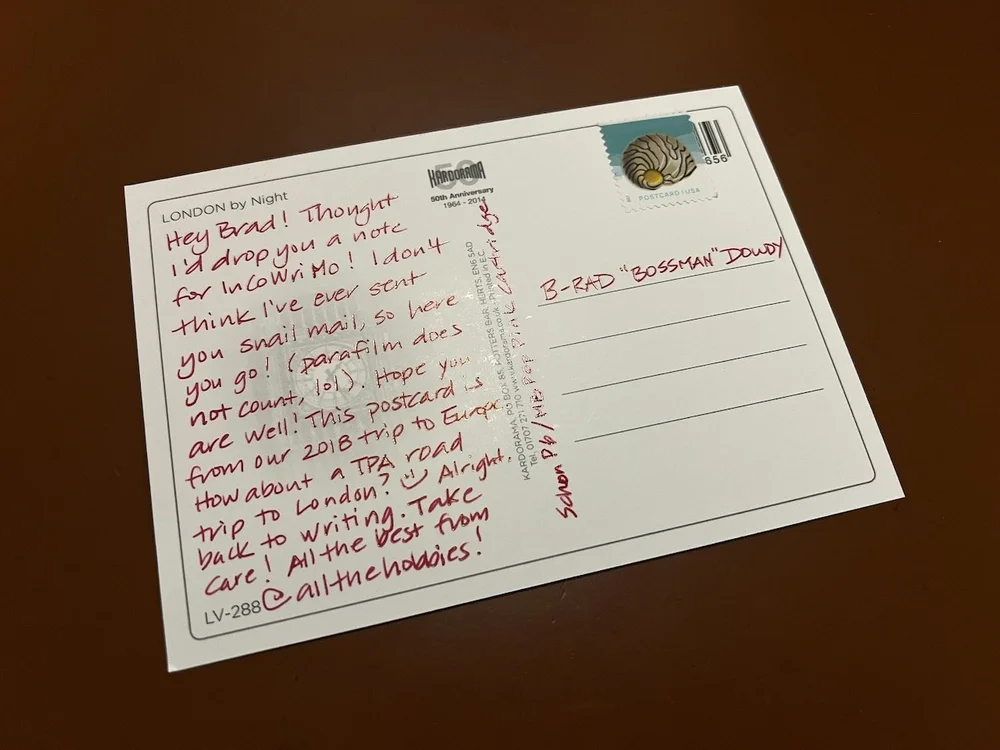 LONDON by Night
Hey Brad! Thought
I'd drop you a note
for InCoWriMo! I don't
think I've ever sent
you snail mail, so here
you go! (parafilm does
not count, lol). Hope you
are well! This postcard is
from our 2018 trip to Europe.
How about a TPA road
trip to London? Alright.
back to writing. Take
care! All the best from
@allthehobbies!
LV-288
50
KARDORAMA
50th Anniversary
1964 - 2014
KARDORAMA, PO BOX 85, POTTERS BAR, HERTS, EN6 5AD
Tel. 01707 271 710 www.kardorama.co.uk Printed in E.C.
Schon P6/MB Pop Pink Cartridge
POSTCARD USA
656
B-RAD "BOSSMAN" DOWDY